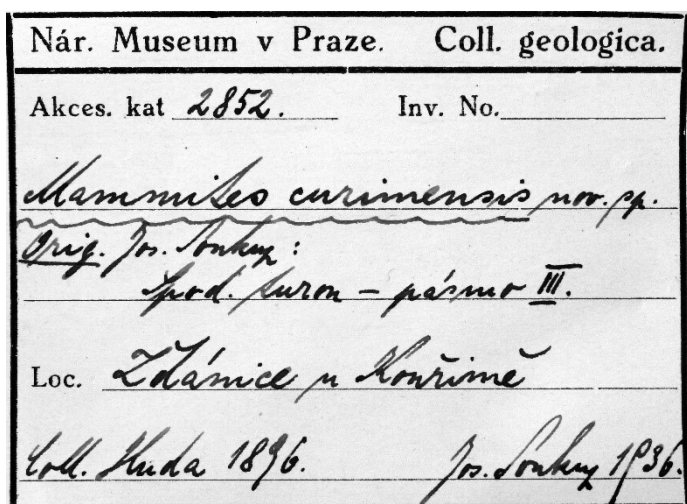 Nár. Museum v Praze. Coll. geologica.
Akces. kat 2852. Inv. No.
Mammites curimensis nov. sp.
Orig. Jos. Soukup:
Spod. turon – pásmo III.
Loc. Ždánice u Kouřimě
Coll. Huda 1896. Jos. Soukup 1936.